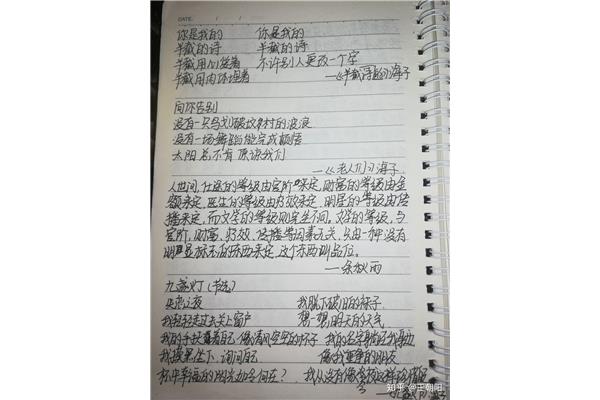 DATE.
你是我的 你是我的
半截的诗 半截的诗
半截用心爱着 不许别人更改一个字
半截用肉体埋着 —《半截的诗》海子
向你告别
没有一只鸟划破坟村的波浪
没有一场舞蹈能完成顿悟
太阳总不肯原谅我们
—《老人们》海子
人世间,仕途的等级由官阶来定,财富的等级由金
额来定,医生的等级由疗效来定,明星的等级由传
播来定,而文学的等级则完全不同。文学的等级,与
官阶,财富,疗效,传播等因素无关,只由一种没有
明显标志的东西来定,这个东西叫品位。
—余秋雨
九盏灯(节选)
失恋之夜 我脱下破旧的袜子
我轻轻走过去关上窗户 想一想明天的天气
我的手扶着自己 像清风空空的杯子 我的名字
我摸黑坐下,询问自己 像我
杯中幸福的阳光如今何在? 我从没有像今夜这样珍惜
知乎 @王朝阳